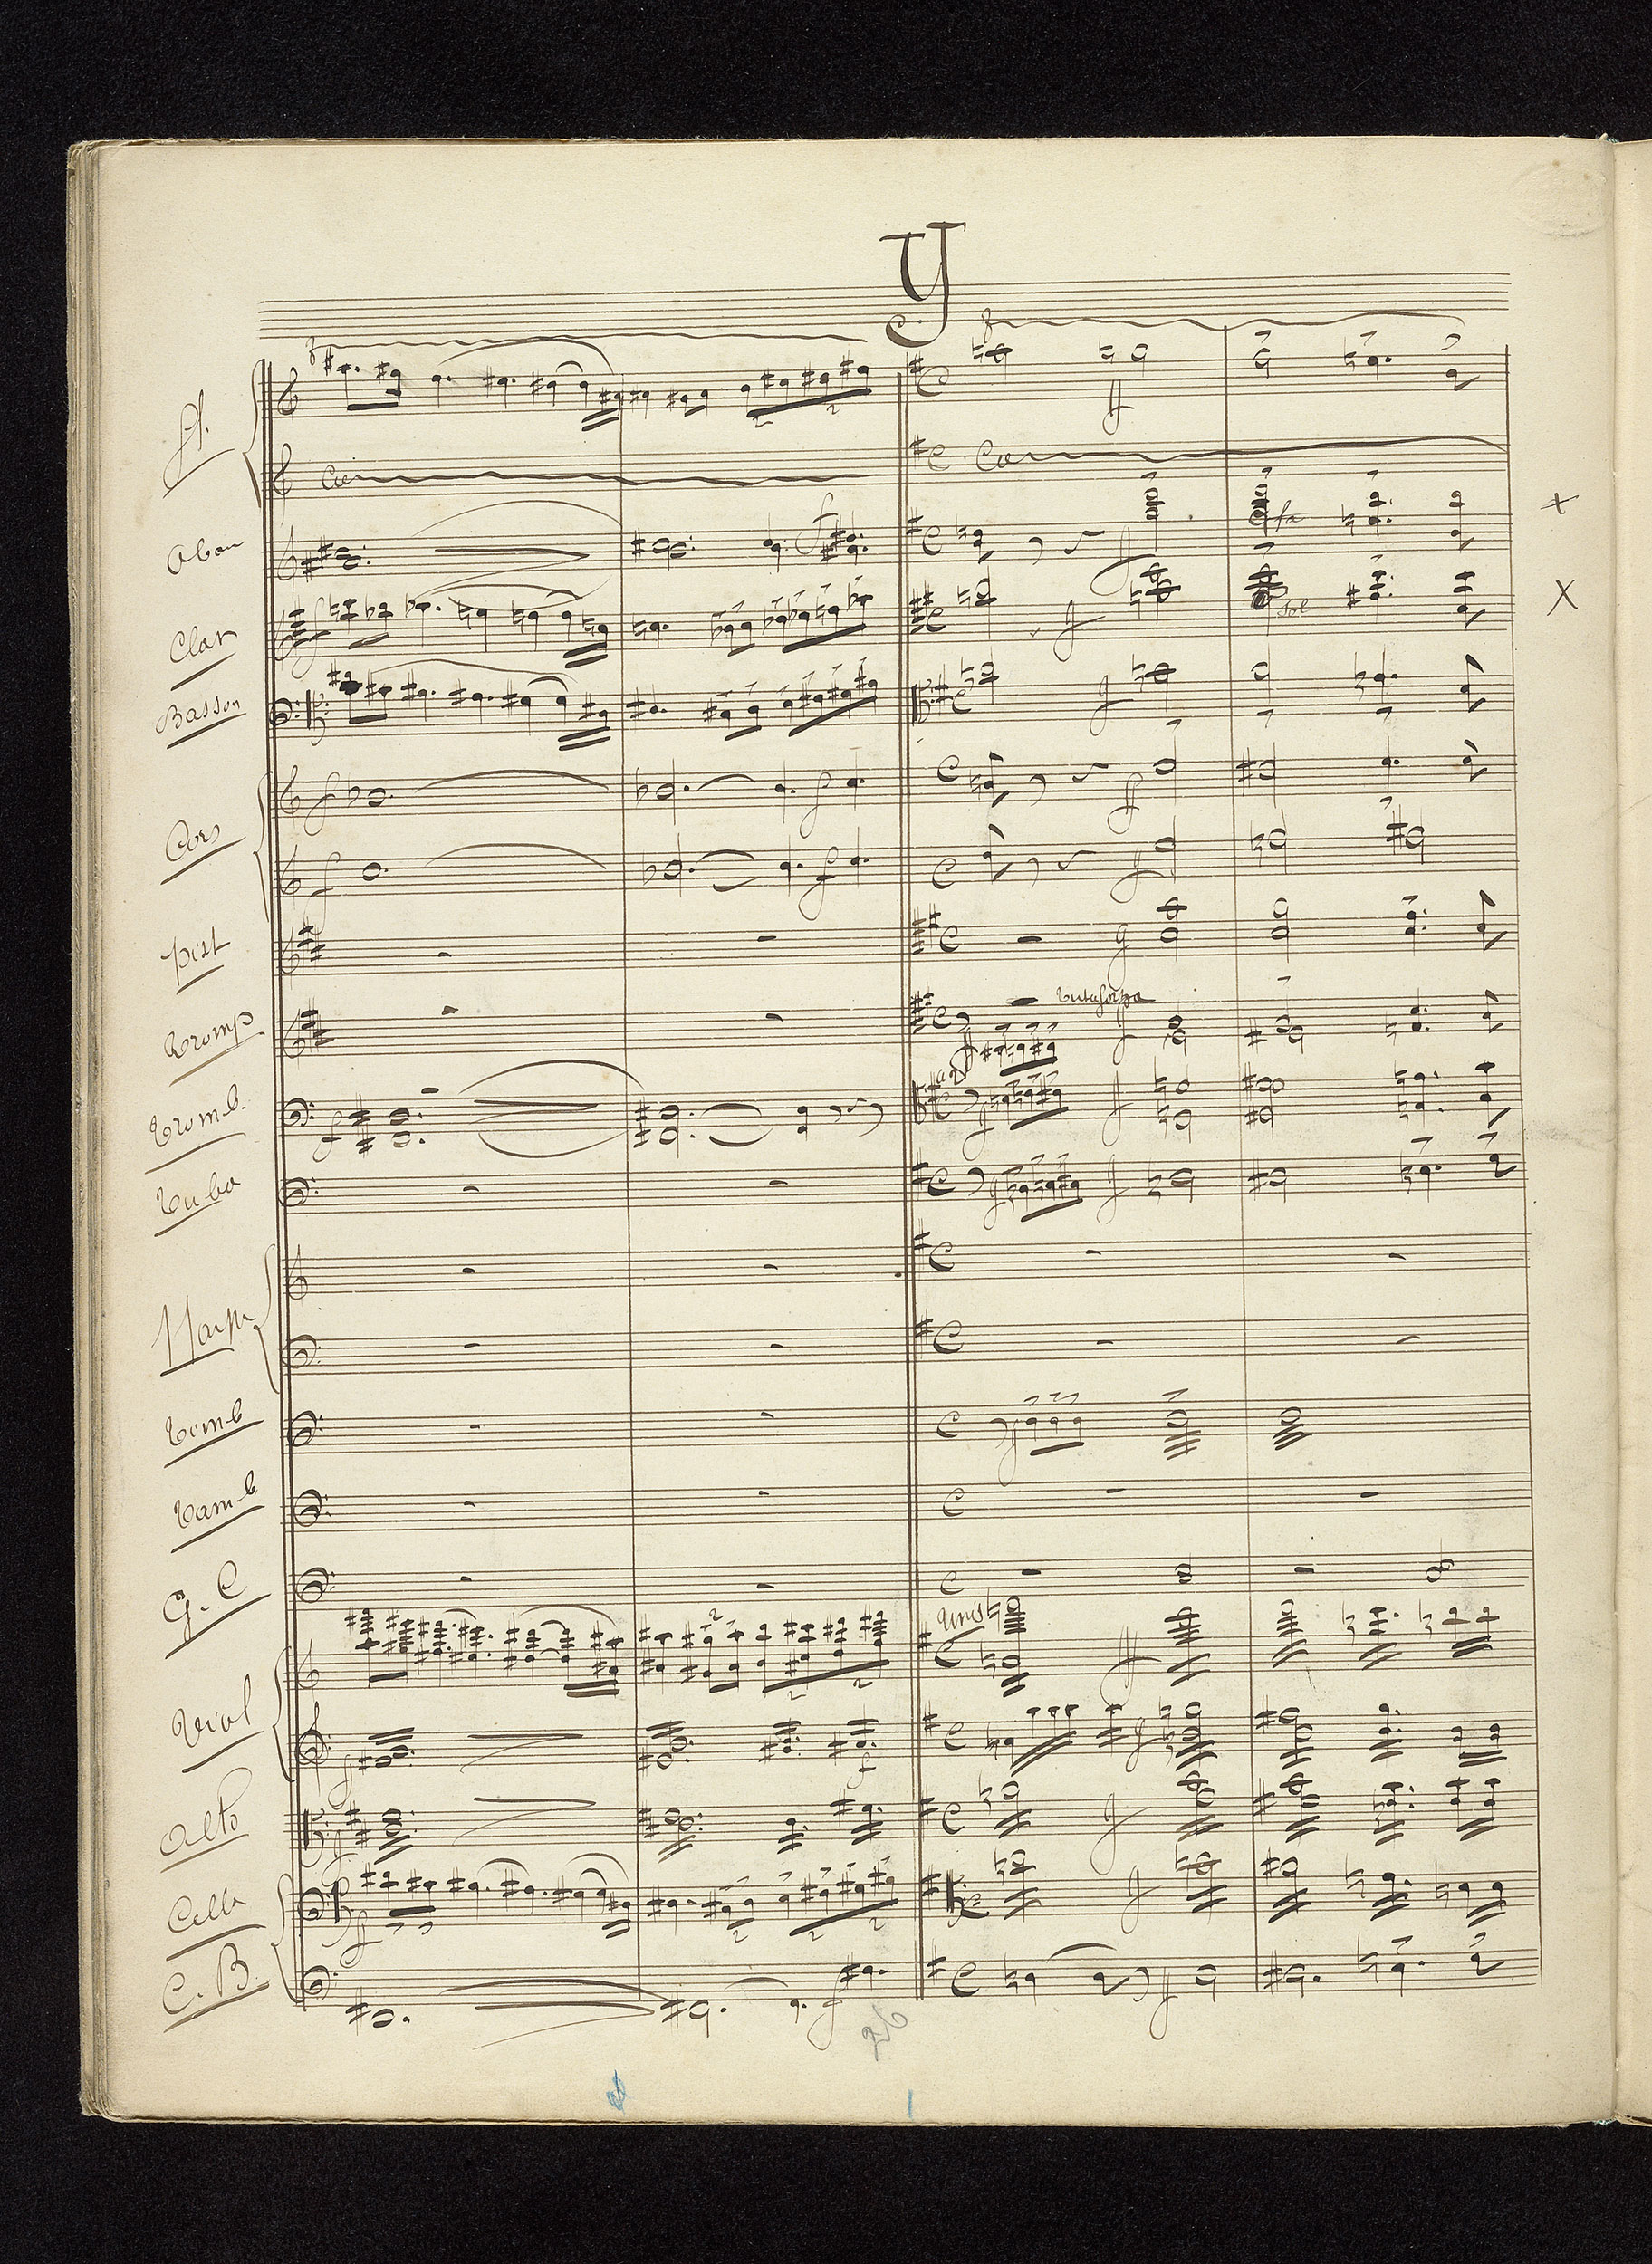 Y
Fl.
Col
Col
Obou
fa
Clar
sol
Basson
Cors
pist
Tromp
tuta forza
a 2
Tromb.
Tuba
Harpe
Timb
Tamb
G. C
unis
Viol
Alto
Cello
C. B.
26